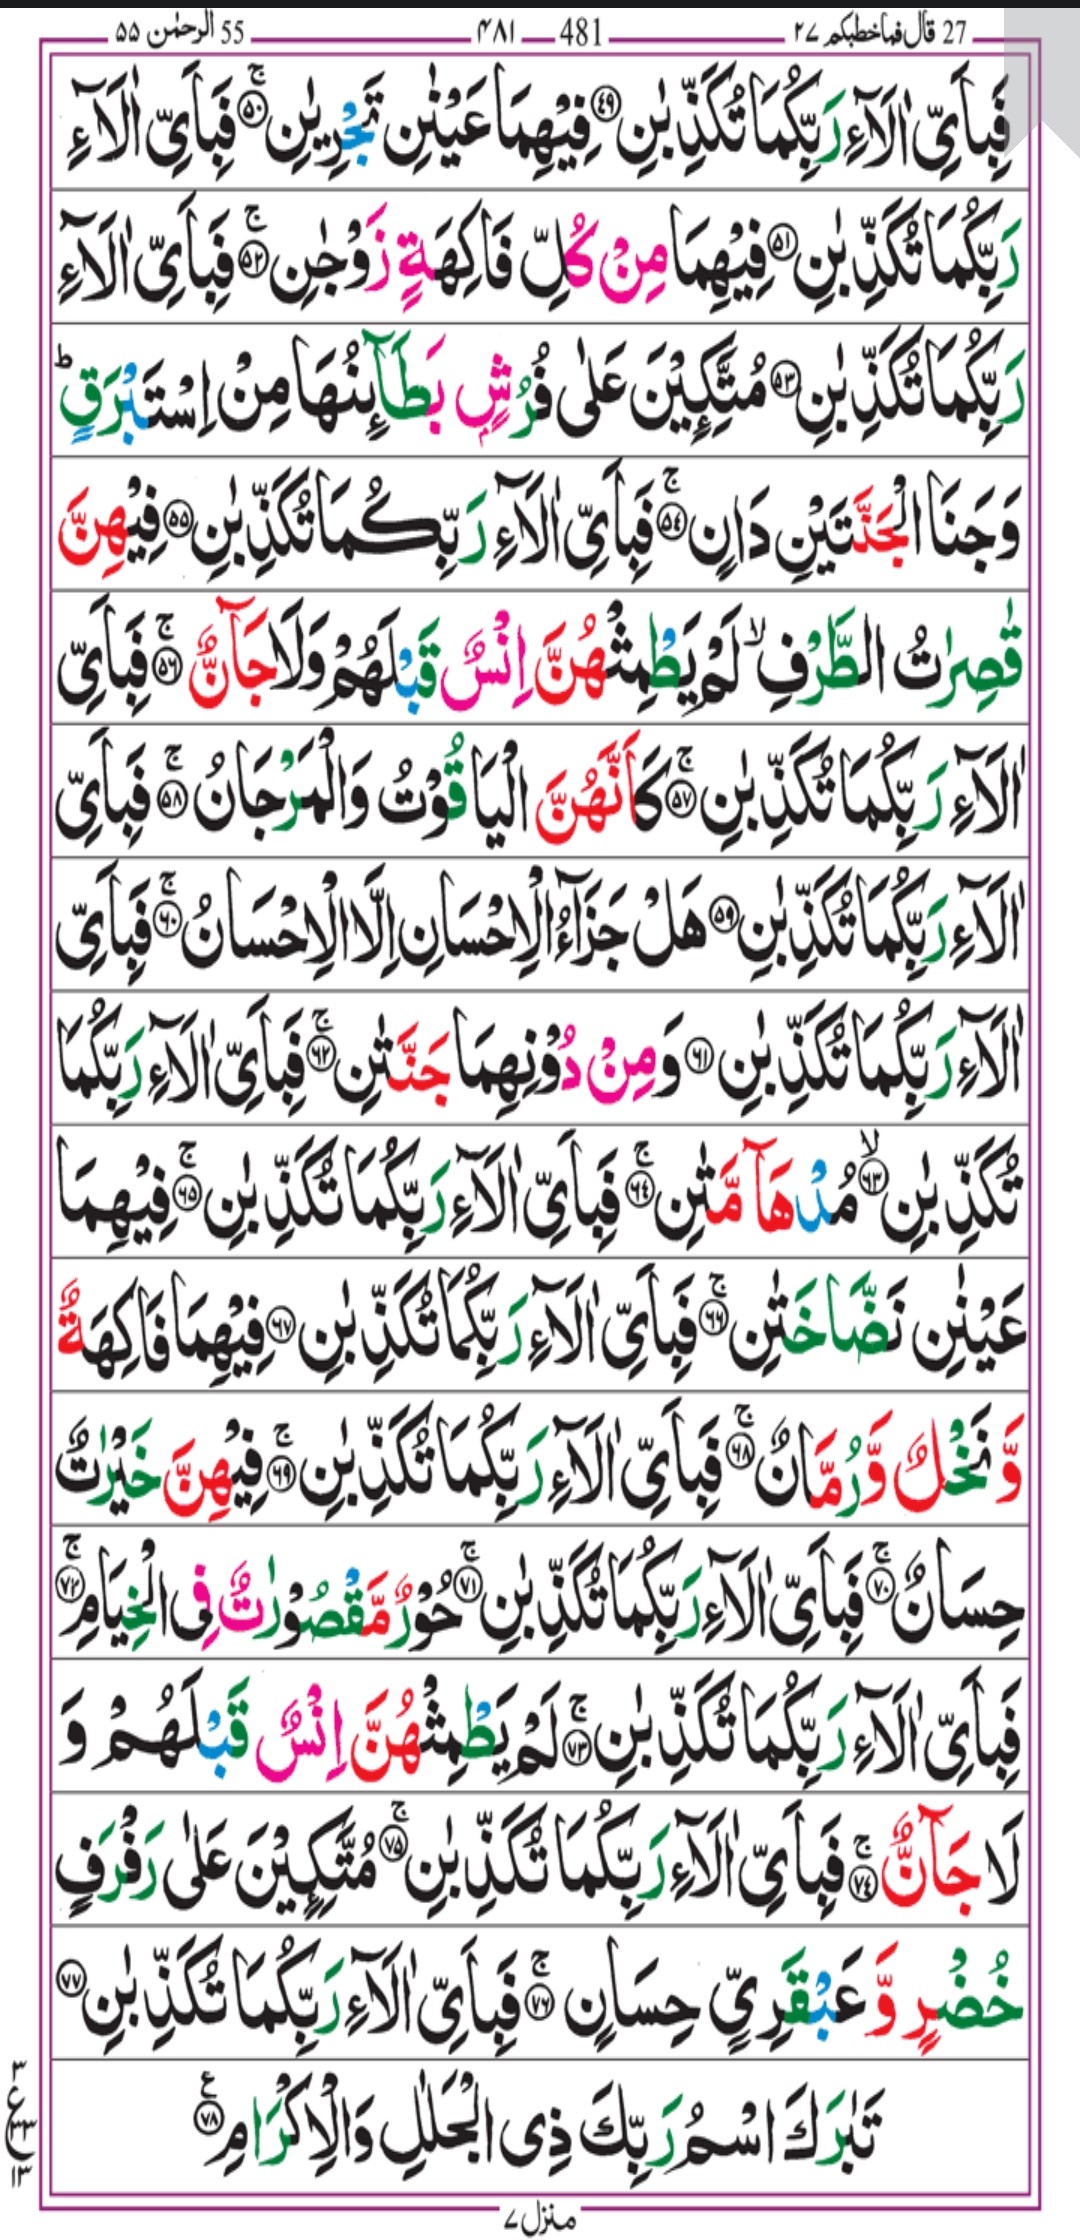 27 قال فماخطبکم ۲۷ 481 ۴۸۱ 55 الرحمٰن ۵۵
فَبِاَىِّ اٰلَآءِ رَبِّكُمَا تُكَذِّبٰنِ ﴿۴۹﴾ فِيْهِمَا عَيْنٰنِ تَجْرِيٰنِ ۚ﴿۵۰﴾ فَبِاَىِّ اٰلَآءِ
رَبِّكُمَا تُكَذِّبٰنِ ﴿۵۱﴾ فِيْهِمَا مِنْ كُلِّ فَاكِهَةٍ زَوْجٰنِ ۚ﴿۵۲﴾ فَبِاَىِّ اٰلَآءِ
رَبِّكُمَا تُكَذِّبٰنِ ﴿۵۳﴾ مُتَّكِـِٕيْنَ عَلٰى فُرُشٍۭ بَطَآٮِٕنُهَا مِنْ اِسْتَبْرَقٍ ؕ
وَجَنَا الْجَنَّتَيْنِ دَانٍ ۚ﴿۵۴﴾ فَبِاَىِّ اٰلَآءِ رَبِّكُمَا تُكَذِّبٰنِ ﴿۵۵﴾ فِيْهِنَّ
قٰصِرٰتُ الطَّرْفِ ۙ لَمْ يَطْمِثْهُنَّ اِنْسٌ قَبْلَهُمْ وَلَا جَآنٌّ ۚ﴿۵۶﴾ فَبِاَىِّ
اٰلَآءِ رَبِّكُمَا تُكَذِّبٰنِ ۚ﴿۵۷﴾ كَاَنَّهُنَّ الْيَاقُوْتُ وَالْمَرْجَانُ ۚ﴿۵۸﴾ فَبِاَىِّ
اٰلَآءِ رَبِّكُمَا تُكَذِّبٰنِ ﴿۵۹﴾ هَلْ جَزَآءُ الْاِحْسَانِ اِلَّا الْاِحْسَانُ ۚ﴿۶۰﴾ فَبِاَىِّ
اٰلَآءِ رَبِّكُمَا تُكَذِّبٰنِ ﴿۶۱﴾ وَمِنْ دُوْنِهِمَا جَنَّتٰنِ ۚ﴿۶۲﴾ فَبِاَىِّ اٰلَآءِ رَبِّكُمَا
تُكَذِّبٰنِ ۙ﴿۶۳﴾ مُدْهَآمَّتٰنِ ۚ﴿۶۴﴾ فَبِاَىِّ اٰلَآءِ رَبِّكُمَا تُكَذِّبٰنِ ۚ﴿۶۵﴾ فِيْهِمَا
عَيْنٰنِ نَضَّاخَتٰنِ ۚ﴿۶۶﴾ فَبِاَىِّ اٰلَآءِ رَبِّكُمَا تُكَذِّبٰنِ ﴿۶۷﴾ فِيْهِمَا فَاكِهَةٌ
وَّ نَخْلٌ وَّرُمَّانٌ ۚ﴿۶۸﴾ فَبِاَىِّ اٰلَآءِ رَبِّكُمَا تُكَذِّبٰنِ ۚ﴿۶۹﴾ فِيْهِنَّ خَيْرٰتٌ
حِسَانٌ ۚ﴿۷۰﴾ فَبِاَىِّ اٰلَآءِ رَبِّكُمَا تُكَذِّبٰنِ ۚ﴿۷۱﴾ حُوْرٌ مَّقْصُوْرٰتٌ فِى الْخِيَامِ ۚ﴿۷۲﴾
فَبِاَىِّ اٰلَآءِ رَبِّكُمَا تُكَذِّبٰنِ ۚ﴿۷۳﴾ لَمْ يَطْمِثْهُنَّ اِنْسٌ قَبْلَهُمْ وَ
لَا جَآنٌّ ۚ﴿۷۴﴾ فَبِاَىِّ اٰلَآءِ رَبِّكُمَا تُكَذِّبٰنِ ۚ﴿۷۵﴾ مُتَّكِـِٕيْنَ عَلٰى رَفْرَفٍ
خُضْرٍ وَّ عَبْقَرِىٍّ حِسَانٍ ۚ﴿۷۶﴾ فَبِاَىِّ اٰلَآءِ رَبِّكُمَا تُكَذِّبٰنِ ﴿۷۷﴾
تَبٰرَكَ اسْمُ رَبِّكَ ذِى الْجَلٰلِ وَالْاِكْرَامِ ﴿۷۸﴾ ع
۳
ع
۳۳
۱۳
منزل ۷